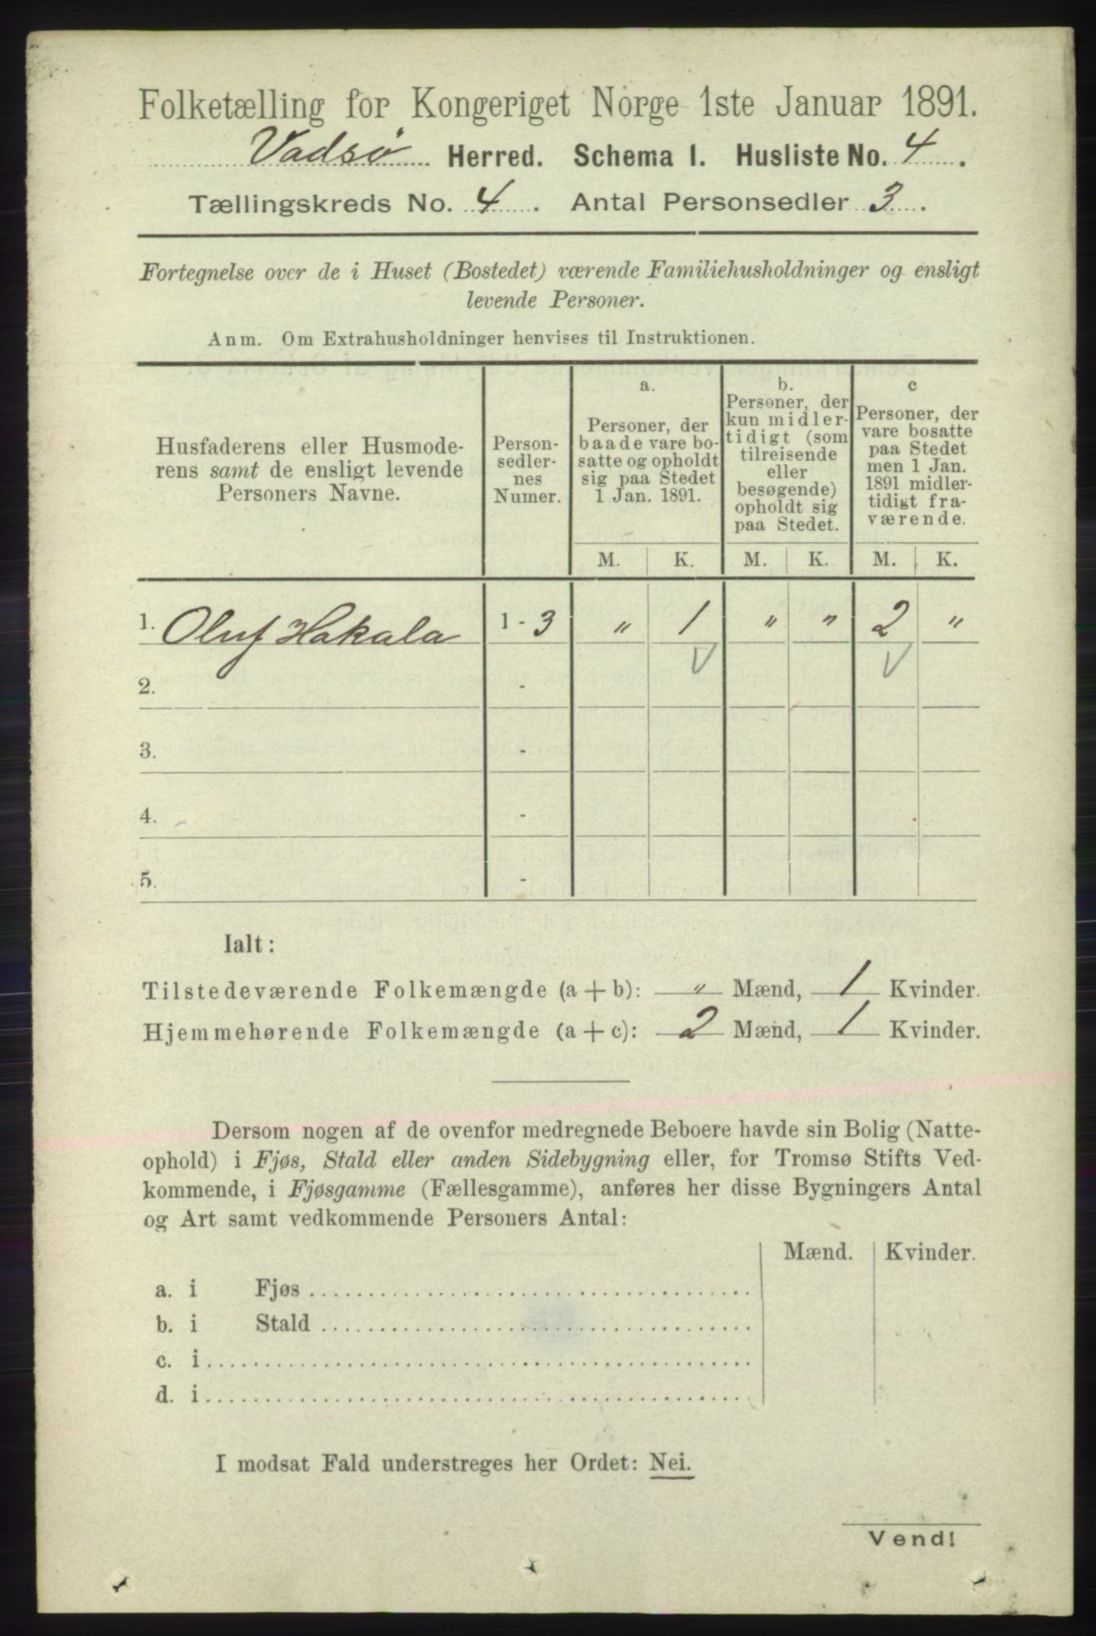 Folketælling for Kongeriget Norge 1ste Januar 1891.
Vadsø Herred. Schema I. Husliste No. 4.
Tællingskreds No. 4. Antal Personsedler 3.
Fortegnelse over de i Huset (Bostedet) værende Familiehusholdninger og ensligt
levende Personer.
Anm. Om Extrahusholdninger henvises til Instruktionen.
Husfaderens eller Husmode-
rens samt de ensligt levende
Personers Navne.
Person-
sedler-
nes
Numer.
a.
Personer, der
baade vare bo-
satte og opholdt
sig paa Stedet
1 Jan. 1891.
b.
Personer, der
kun midler-
tidigt (som
tilreisende
eller
besøgende)
opholdt sig
paa Stedet.
c
Personer, der
vare bosatte
paa Stedet
men 1 Jan.
1891 midler-
tidigt fra-
værende.
M. K. M. K. M. K.
1. Oluf Hakala 1 - 3 " 1 " " 2 "
V V
2. -
3. -
4. -
5. -
Ialt:
Tilstedeværende Folkemængde (a + b): " Mænd, 1 Kvinder.
Hjemmehørende Folkemængde (a + c): 2 Mænd, 1 Kvinder.
Dersom nogen af de ovenfor medregnede Beboere havde sin Bolig (Natte-
ophold) i Fjøs, Stald eller anden Sidebygning eller, for Tromsø Stifts Ved-
kommende, i Fjøsgamme (Fællesgamme), anføres her disse Bygningers Antal
og Art samt vedkommende Personers Antal:
Mænd. Kvinder.
a. i Fjøs
b. i Stald
c. i
d. i
I modsat Fald understreges her Ordet: Nei.
Vend!